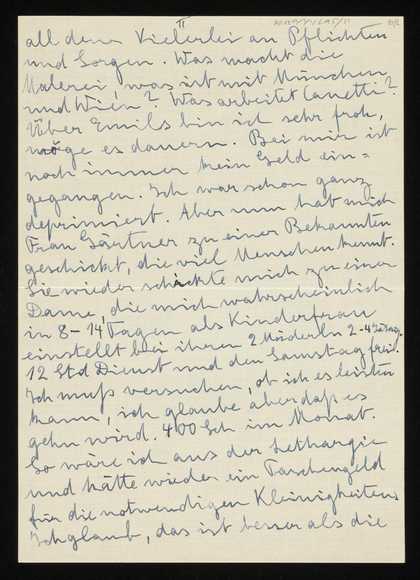 II
all dem Vielerlei an Pflichten
und Sorgen. Was macht die
Malerei, was ist mit München
und Wien? Was arbeitet Canetti?
Über Emils bin ich sehr froh,
möge es dauern. Bei mir ist
noch immer kein Geld ein=
gegangen. Ich war schon ganz
deprimiert. Aber nun hat mich
Frau Gärtner zu einer Bekannten
geschickt, die viel Menschen kennt.
Sie wieder schickte mich zu einer
Dame, die mich wahrscheinlich
in 8-14 Tagen als Kinderfrau
einstellt bei ihren 2 Mäderln 2-4 jährig.
12 Std Dienst und den Samstag frei.
Ich muß versuchen, ob ich es leisten
kann, ich glaube aber daß es
gehn wird. 400 Sch im Monat.
So wäre ich aus der Lethargie
und hätte wieder ein Taschengeld
für die notwendigen Kleinigkeiten
Ich glaub, das ist besser als die